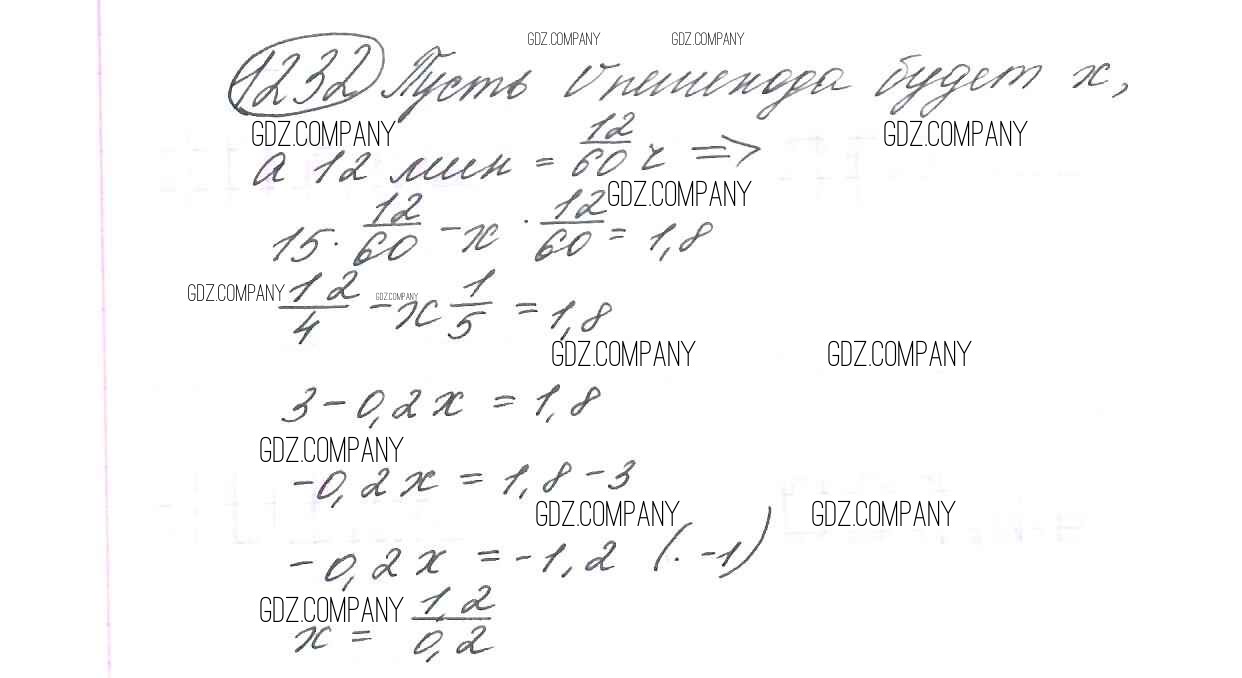 GDZ.COMPANY GDZ.COMPANY
1232 Пусть V пешехода будет x,
GDZ.COMPANY GDZ.COMPANY
а 12 мин = 12/60 ч =>
GDZ.COMPANY
15 · 12/60 - x · 12/60 = 1,8
GDZ.COMPANY GDZ.COMPANY
12/4 - x 1/5 = 1,8
GDZ.COMPANY GDZ.COMPANY
3 - 0,2x = 1,8
GDZ.COMPANY
-0,2x = 1,8 - 3
GDZ.COMPANY GDZ.COMPANY
-0,2x = -1,2 (· -1)
GDZ.COMPANY
x = 1,2/0,2